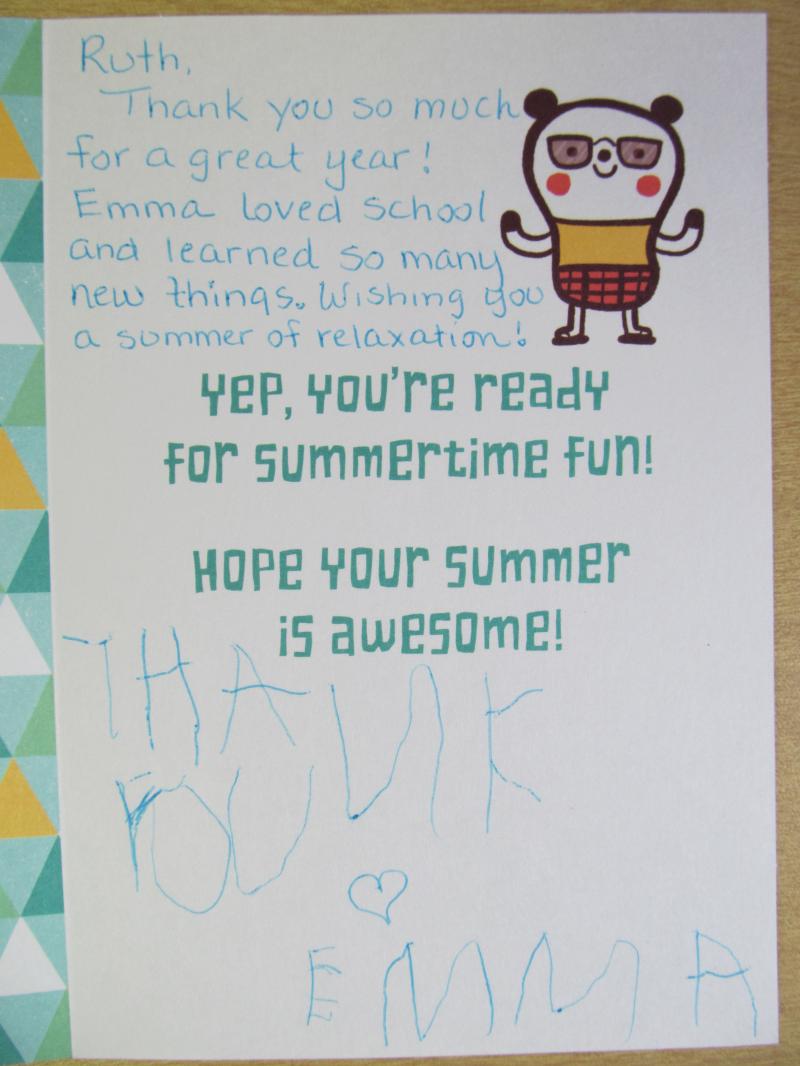 Ruth,
Thank you so much
for a great year!
Emma loved school
and learned so many
new things. Wishing you
a summer of relaxation!
Yep, you're ready
for summertime fun!
Hope your summer
is awesome!
THANK
YOU
EMMA